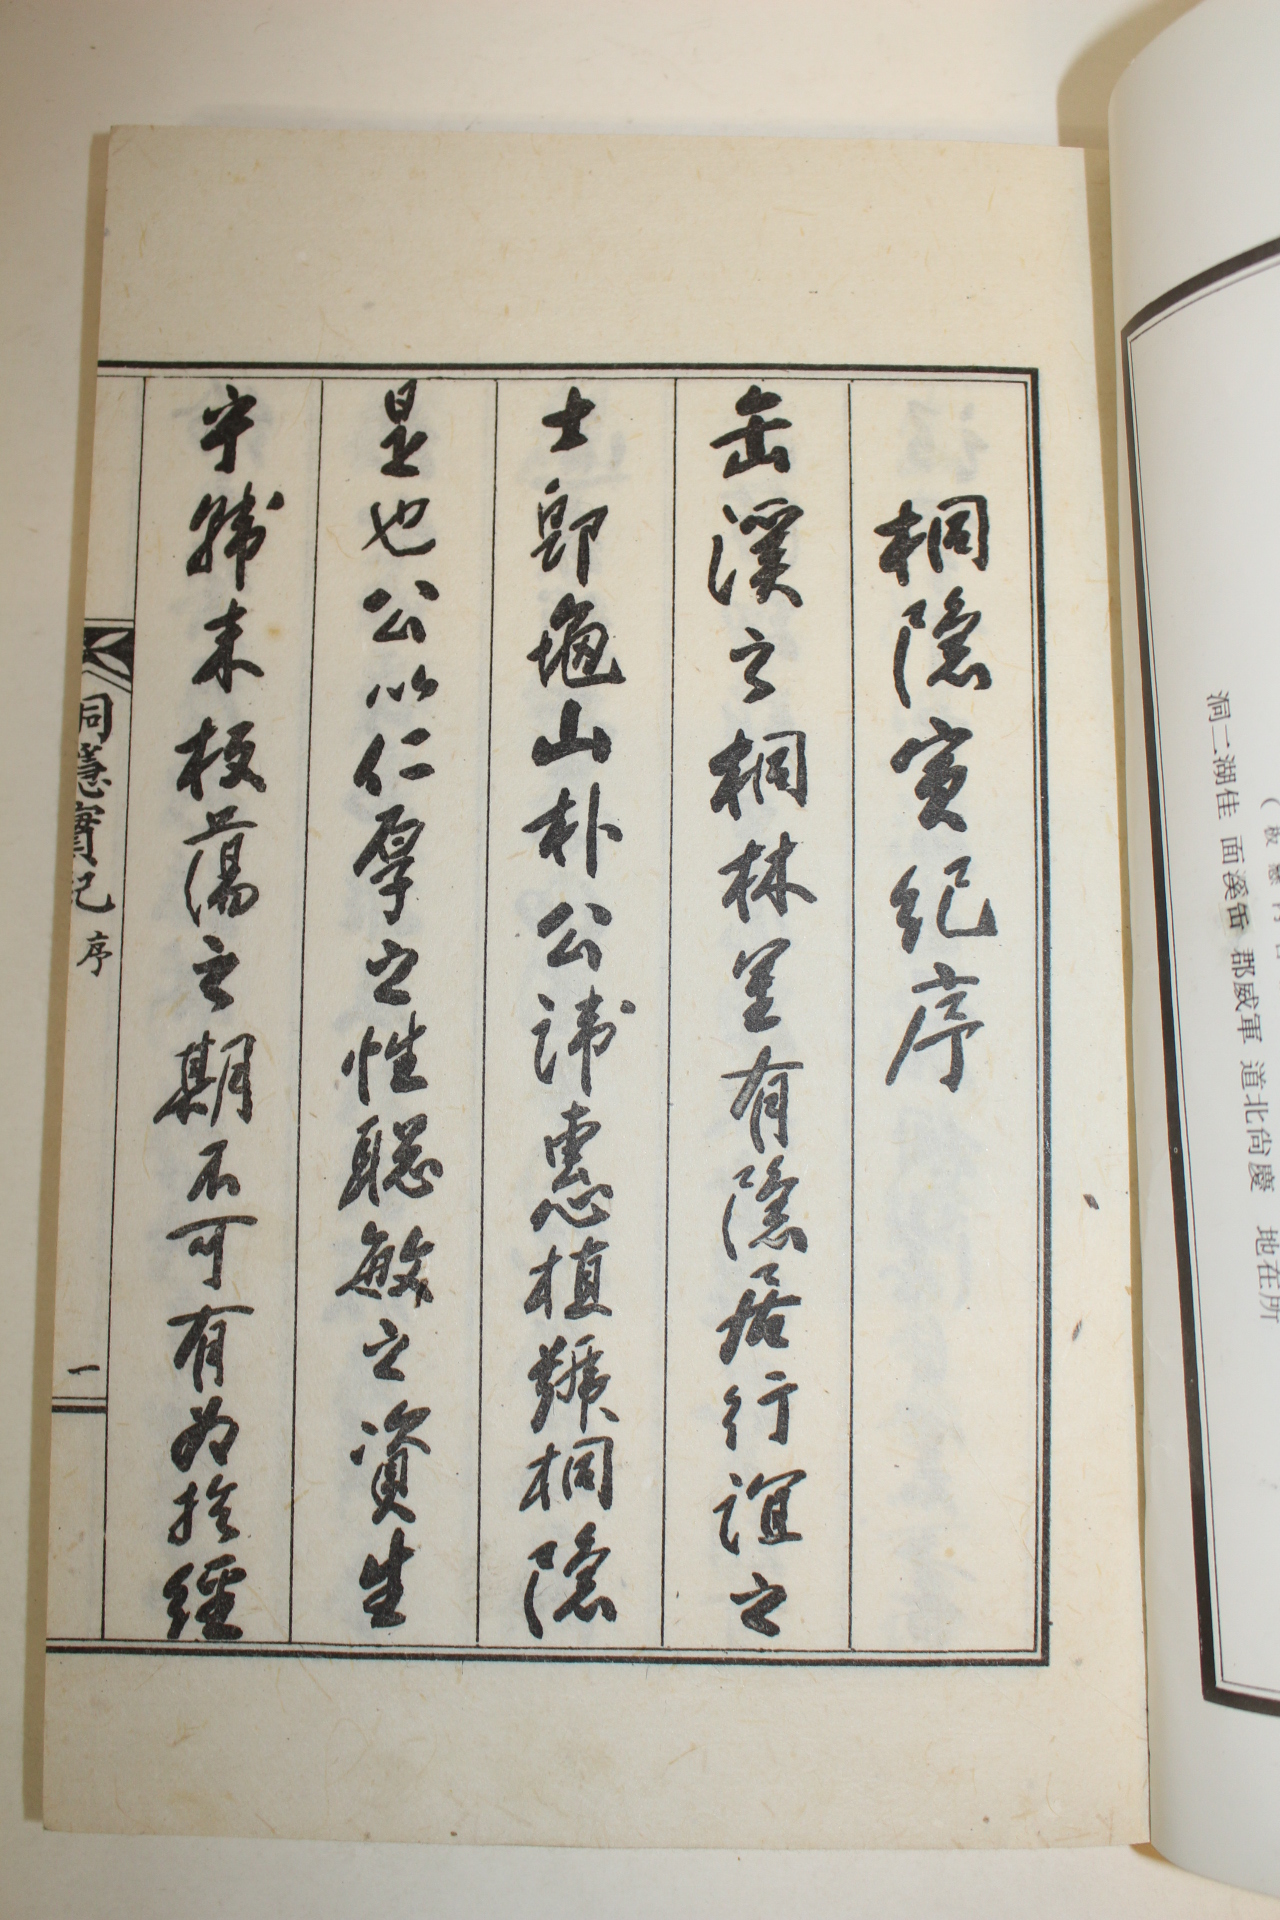 所在地 慶尙北道 軍威郡 缶溪面 佳湖二洞
桐隱實紀序
缶溪之桐林里有隱居行誼之
士卽龜山朴公諱惠植號桐隱
是也公以仁厚之性聰敏之資生
于韓末板蕩之期不可有爲於經
桐隱實記 序 一